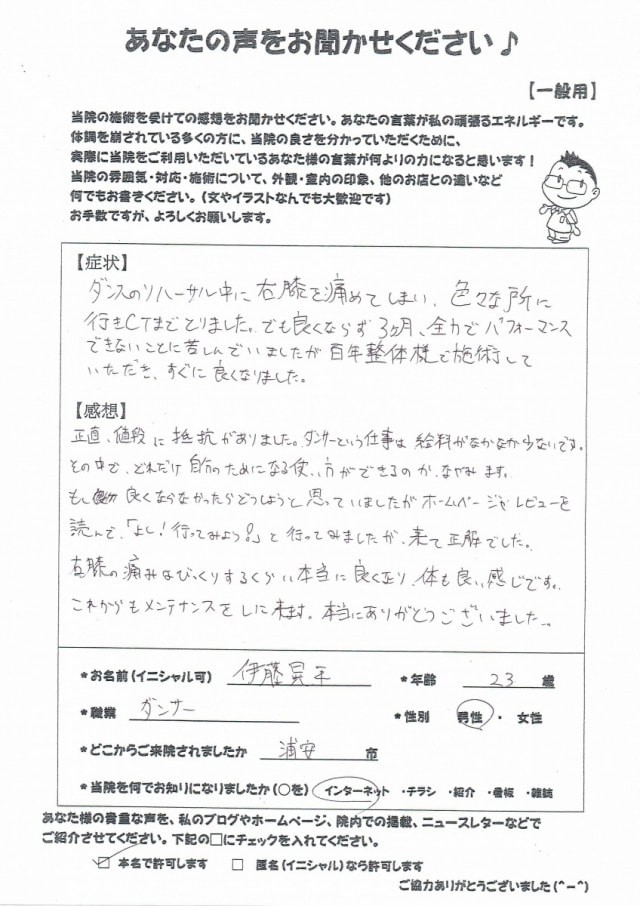 あなたの声をお聞かせください♪
【一般用】
当院の施術を受けての感想をお聞かせください。あなたの言葉が私の頑張るエネルギーです。
体調を崩されている多くの方に、当院の良さを分かっていただくために、
実際に当院をご利用いただいているあなた様の言葉が何よりの力になると思います！
当院の雰囲気・対応・施術について、外観・室内の印象、他のお店との違いなど
何でもお書きください。（文やイラストなんでも大歓迎です）
お手数ですが、よろしくお願いします。
【症状】
ダンスのリハーサル中に右膝を痛めてしまい、色々な所に
行きCTまでとりました。でも良くならず3ヶ月、全力でパフォーマンス
できないことに苦しんでいましたが百年整体様で施術して
いただき、すぐに良くなりました。
【感想】
正直、値段に抵抗がありました。ダンサーという仕事は給料がなかなか少ないです。
その中で、どれだけ自分のためになる使い方ができるのか、なやみます。
もし良くならなかったらどうしようと思っていましたがホームページやレビューを
読んで、「よし！行ってみよう！」と行ってみましたが、来て正解でした。
右膝の痛みはびっくりするくらい本当に良くなり、体も良い感じです。
これからもメンテナンスをしに来ます。本当にありがとうございました。
*お名前(イニシャル可) 伊藤晃平 *年齢 23 歳
*職業 ダンサー *性別 男性 ・ 女性
*どこからご来院されましたか 浦安 市
*当院を何でお知りになりましたか(○を) インターネット ・チラシ ・紹介 ・看板 ・雑誌
あなた様の貴重な声を、私のブログやホームページ、院内での掲載、ニュースレターなどで
ご紹介させてください。下記の□にチェックを入れてください。
☑ 本名で許可します □ 匿名(イニシャル)なら許可します
ご協力ありがとうございました(^-^)